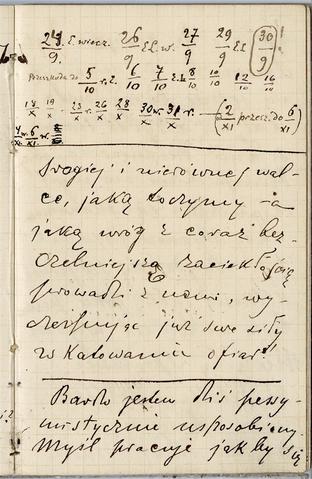 24/9. E. wiecz. 26/9 E E. w. 27/9 29/9 E E 30/9 !
Przeszkoda do 5/10 r. E. 6/10 7/10 E. 8/10 10/10 12/10 16/10
18/X 19/X - 23/X r. 26/X 28/X 30/X w. 31/X r. — (2/XI przesz. do 6/XI)
4/XI w. 6/XI w.
srogiej i nierównej wal-
ce, jaką toczymy – a
jaką wróg z coraz bez-
czelniejszą zaciekłością
prowadzi z nami, wy-
czerpując już swe siły
w katowaniu ofiar!"
Bardzo jestem dziś pesy-
mistycznie usposobiony.
Myśl pracuje jakby się